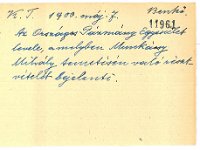 K. T. 1900. máj. 7. Benkő
11961
Az Országos Pázmány Egyesület
levele, a melyben Munkácsy
Mihály temetésén való részt-
vételét bejelenti.